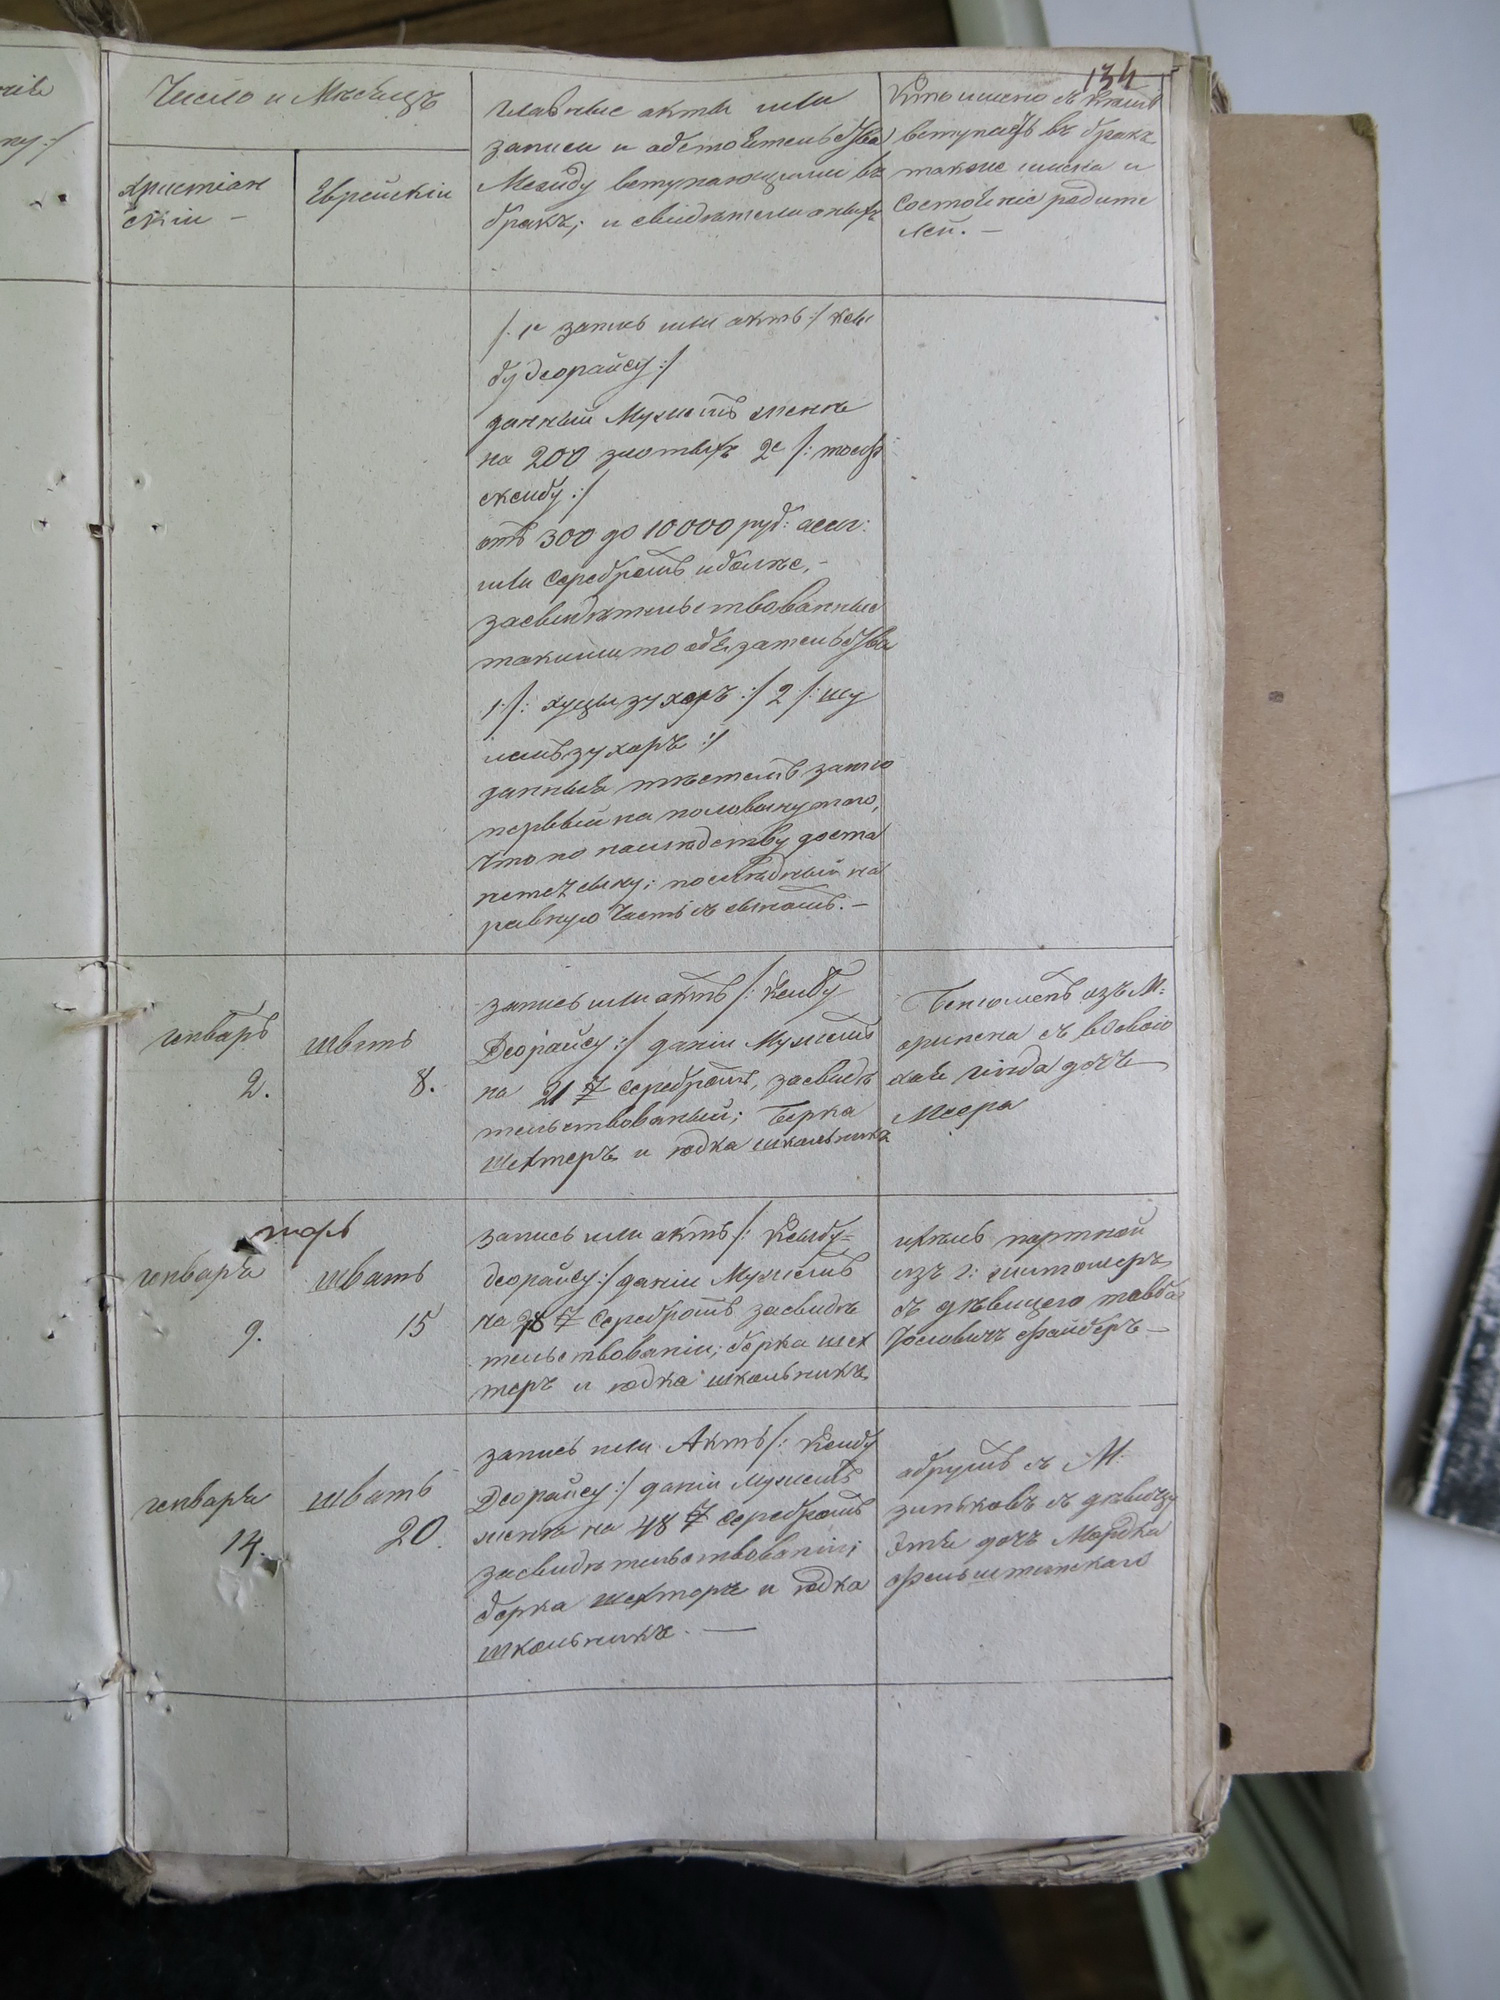 134
Число и Мѣсяцъ
Христіан
скіи –
Еврейскіи
главные акты или
записи и обстоятельства
Между вступающими въ
бракъ; и свидѣтели оныхъ
Кто именно съ кемъ
вступаетъ въ бракъ
также имена и
Состояніе родите
лей. –
/: 1е запись или актъ :/ ксы
бу деорайсу :/
данный Мужемъ женѣ
на 200 злотыхъ 2е /: тосф
ексибу :/
отъ 300 до 10000 руб: асиг:
или Серебромъ и болѣе, –
засвидѣтельствованные
1 /: хуцы зухоръ :/ 2 /: шу
лемъ зухоръ :/
данныя тестемъ зятю
первый на половину того,
что по наслѣдству доста
нется сыну; послѣдный на
равную Часть съ сыномъ. –
генваръ
2.
шватъ
8.
запись или актъ /: Ксибу
Деорайсу :/ даніи Мужемъ
на 21 Серебромъ, засвидѣ
тельствованый; Берка
Шехтеръ и Юдка школьникъ
изъ М:
съ вдовою
дочъ
Меера
генваря
9.
шватъ
15
запись или актъ /: Ксыбу=
деорайсу :/ даніи Мужемъ
на Серебромъ засвидѣ
тельствованіи; берка шех
теръ и юдка школьникъ
портной
изъ г: житомеръ
съ дѣвицею
Іосіовичъ файберъ –
генваря
14.
шватъ
20.
запись или Актъ /: Ксибу
Деорайсу :/ даніи мужемъ
женѣ на 48 Серебромъ
засвидѣтельствованіи;
берка шехтеръ и юдка
школьникъ. —
абрумъ съ М:
зиньковъ съ дѣвицу
дочъ Мордка
фельштинскаго